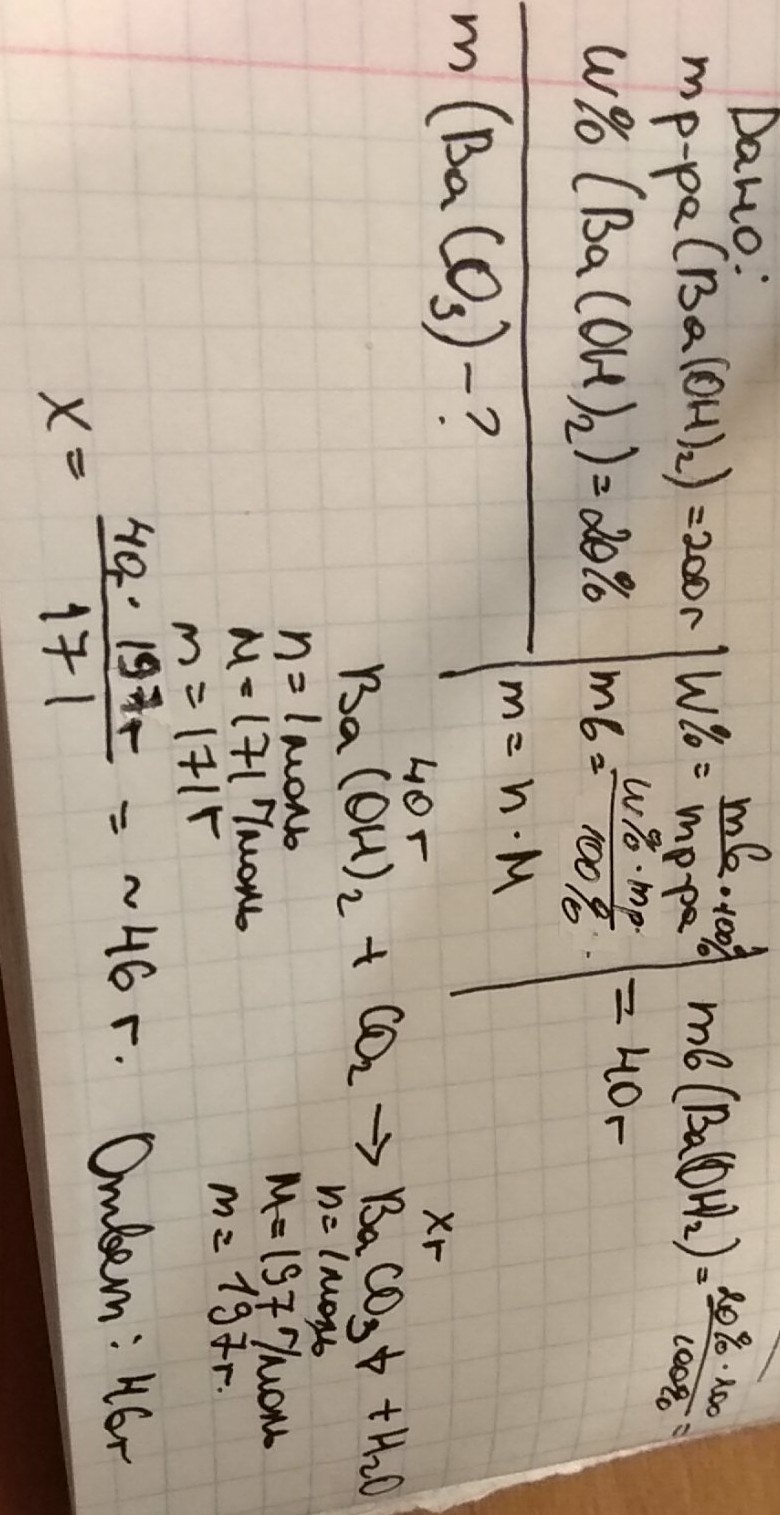 Дано:
m р-ра (Ba(OH)₂) = 200 г
W% (Ba(OH)₂) = 20%
m (BaCO₃) - ?
W% = mв · 100% / m р-ра
mв = W% · mр. / 100%
m = n · M
mв (Ba(OH)₂) = 20% · 200 / 100% =
= 40 г
40 г xг
Ba(OH)₂ + CO₂ → BaCO₃↓ + H₂O
n = 1 моль n = 1 моль
M = 171 г/моль M = 197 г/моль
m = 171 г m = 197 г.
X = 40 · 197 г / 171 = ~ 46 г. Ответ: 46 г